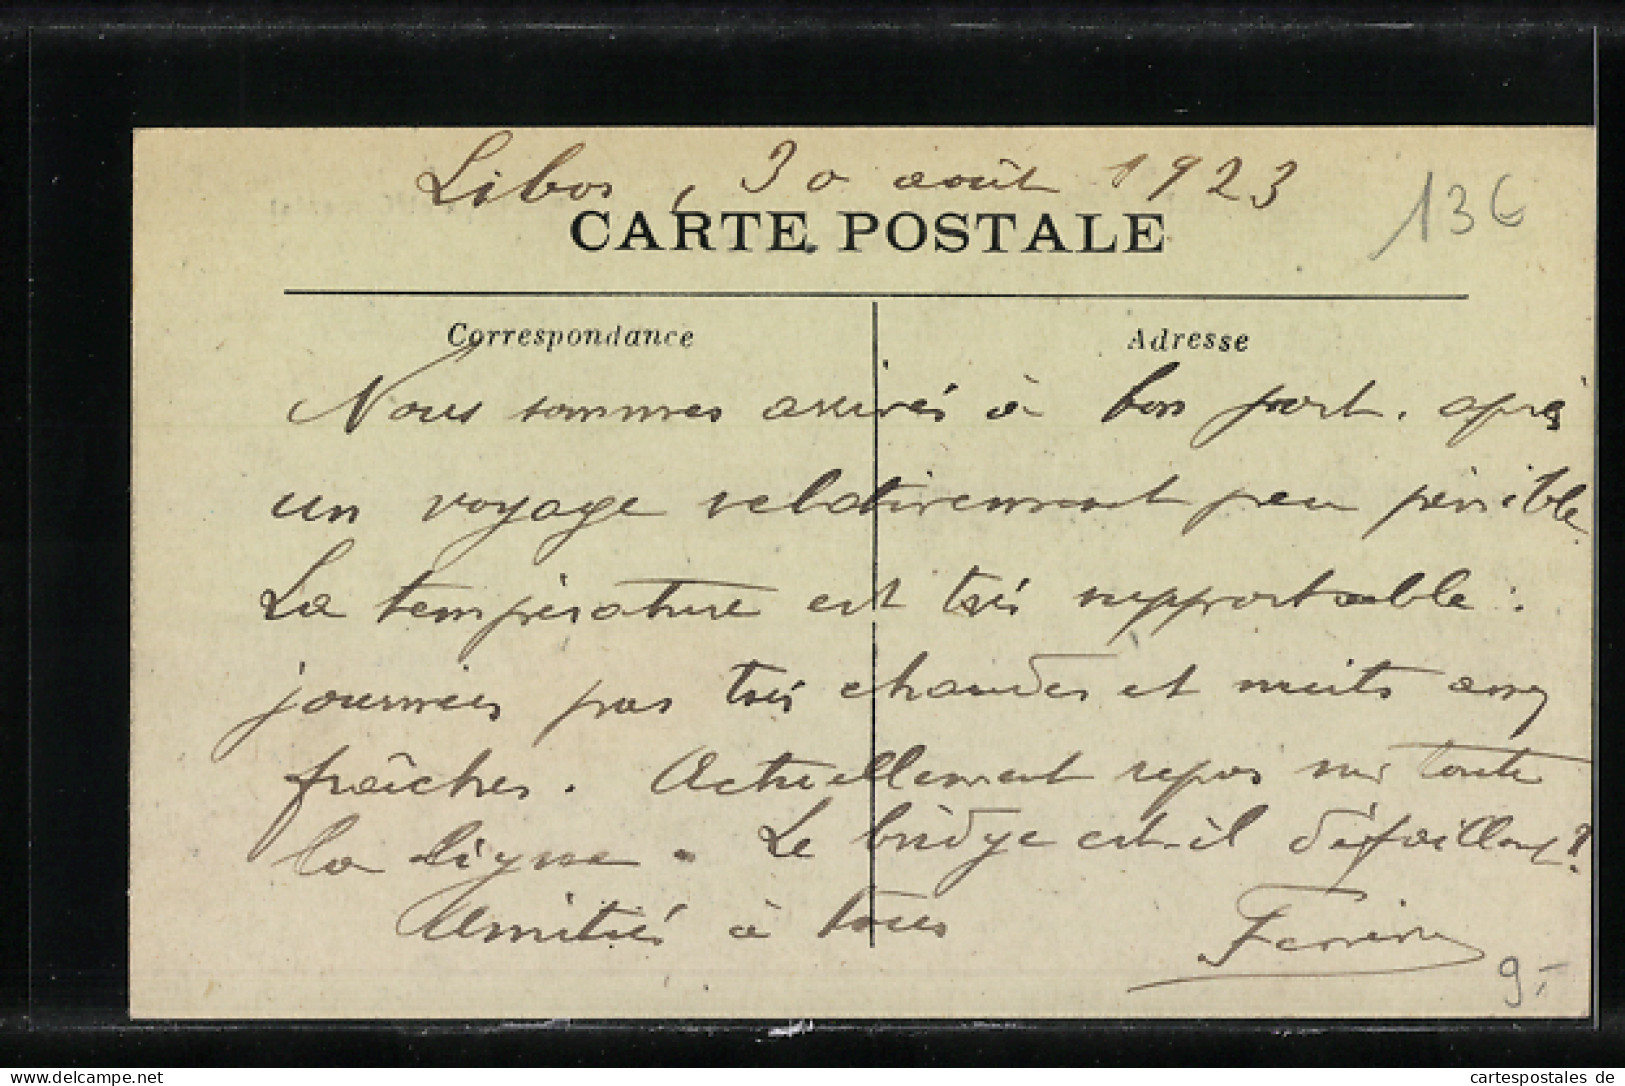 Libos, 30 août 1923
136
CARTE POSTALE
Correspondance
Adresse
Nous sommes arrivés à bon port. après
un voyage relativement peu pénible
La température est très supportable :
journées pas très chaudes et nuits assez
fraîches. Actuellement repos sur toute
la ligne. Le bridge est-il défaillant ?
Amitiés à tous
9.-
delcampe.net
cartespostales de